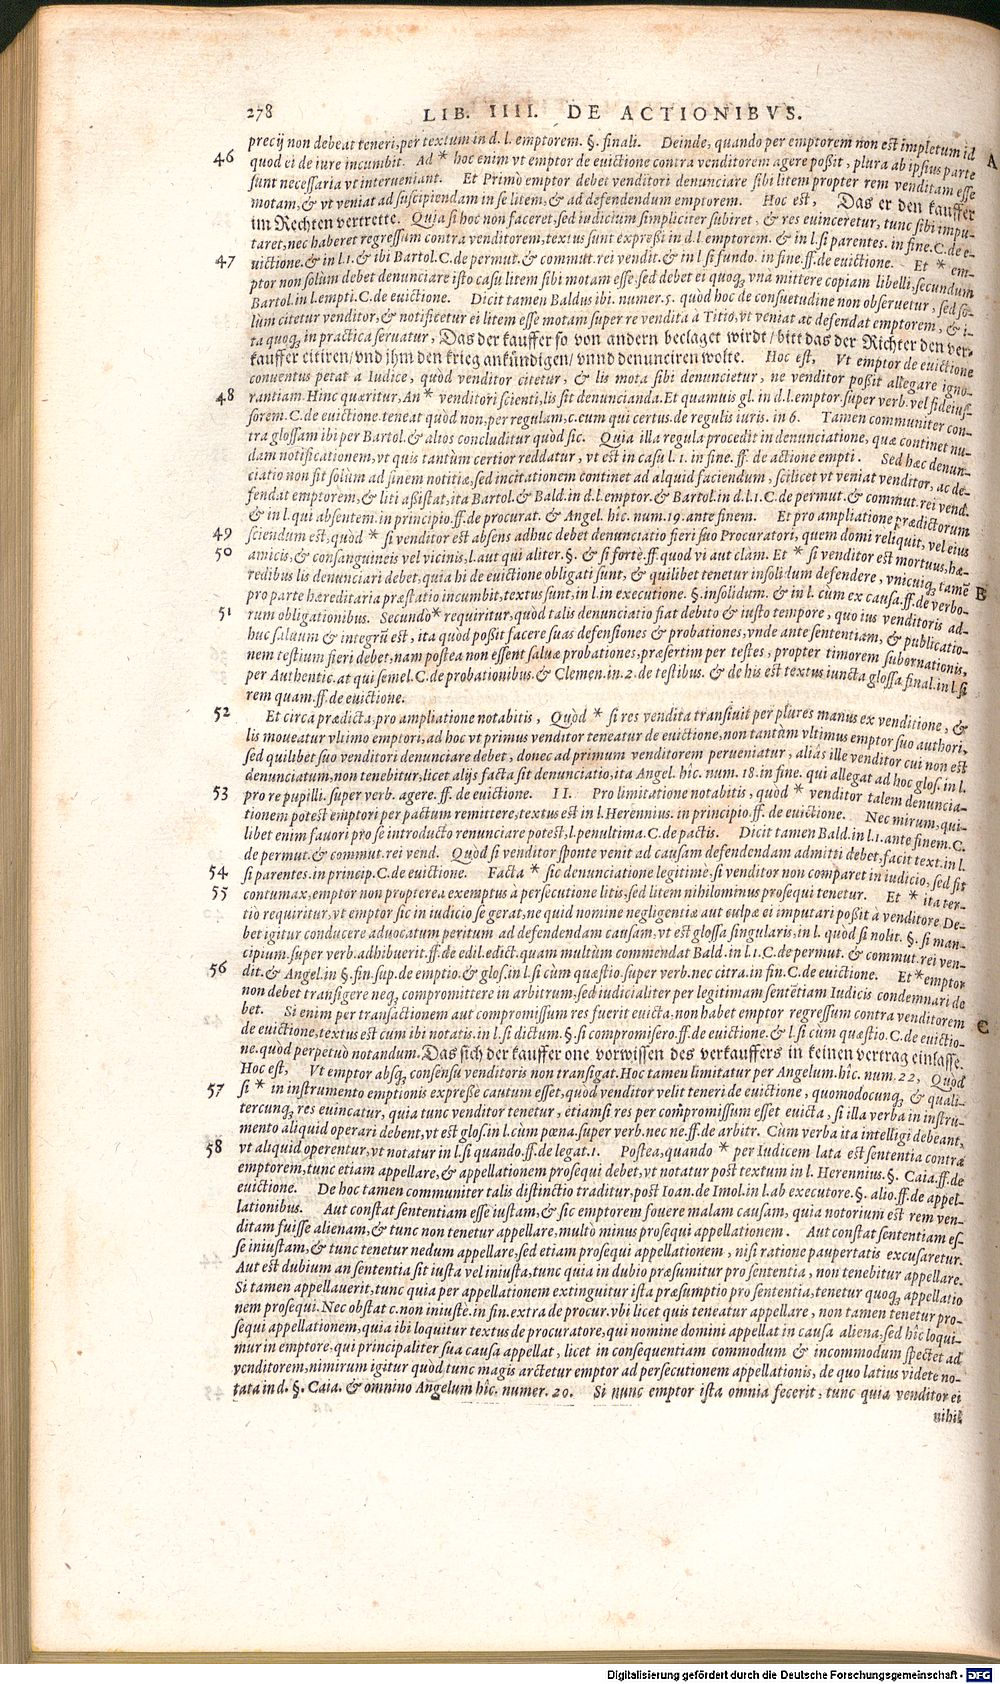 278 LIB. IIII. DE ACTIONIBVS.
precij non debeat teneri, per textum in d. l. emptorem. §. finali. Deinde, quando per emptorem non est impletum id
46 quod ei de iure incumbit. Ad * hoc enim vt emptor de euictione contra venditorem agere poßit, plura ab ipsius parte A
sunt necessaria vt interueniant. Et Primò emptor debet venditori denunciare sibi litem propter rem venditam esse
motam, & vt veniat ad suscipiendam in se litem, & ad defendendum emptorem. Hoc est, Das er den kauffer
im Rechten vertrette. Quia si hoc non faceret, sed iudicium simpliciter subiret, & res euinceretur, tunc sibi impu-
taret, nec haberet regressum contra venditorem, textus sunt expreßi in d. l emptorem. & in l. si parentes. in fine. C. de e-
47 uictione. & in l. 1. & ibi Bartol. C. de permut. & commut. rei vendit. & in l si fundo. in fine. ff. de euictione. Et * em-
ptor non solùm debet denunciare isto casu litem sibi motam esse, sed debet ei quoq; vnà mittere copiam libelli, secundum
Bartol. in l. empti. C. de euictione. Dicit tamen Baldus ibi. numer. 5. quòd hoc de consuetudine non obseruetur, sed so-
lùm citetur venditor, & notificetur ei litem esse motam super re vendita à Titio, vt veniat ac defendat emptorem, & i-
ta quoq; in practica seruatur, Das der kauffer so von andern beclaget wirdt / bitt das der Richter den ver-
kauffer citiren / vnd jhm den krieg ankündigen / vnnd denunciren wolte. Hoc est, Vt emptor de euictione
conuentus petat a Iudice, quòd venditor citetur, & lis mota sibi denuncietur, ne venditor poßit allegare igno-
48 rantiam. Hinc quæritur, An * venditori scienti, lis sit denuncianda. Et quamuis gl. in d. l. emptor. super verb. vel fideius-
sorem. C. de euictione. teneat quòd non, per regulam, c. cum qui certus. de regulis iuris. in 6. Tamen communiter con-
tra glossam ibi per Bartol. & alios concluditur quòd sic. Quia illa regula procedit in denunciatione, quæ continet nu-
dam notificationem, vt quis tantùm certior reddatur, vt est in casu l. 1. in fine. ff. de actione empti. Sed hæc denun-
ciatio non fit solùm ad finem notitiæ, sed incitationem continet ad alquid faciendum, scilicet vt veniat venditor, ac de-
fendat emptorem, & liti aßistat, ita Bartol. & Bald. in d. l. emptor. & Bartol. in d. l. 1. C. de permut. & commut. rei vend.
& in l. qui absentem. in principio. ff. de procurat. & Angel. hîc. num. 19. ante finem. Et pro ampliatione prædictorum
49 sciendum est, quòd * si venditor est absens adhuc debet denunciatio fieri suo Procuratori, quem domi reliquit, vel eius
50 amicis, & consanguineis vel vicinis, l. aut qui aliter. §. & si fortè. ff. quod vi aut clàm. Et * si venditor est mortuus, hæ-
redibus lis denunciari debet, quia hi de euictione obligati sunt, & quilibet tenetur insolidum defendere, vnicuiq; tamẽ B
pro parte hæreditaria præstatio incumbit, textus sunt, in l. in executione. §. insolidum. & in l. cùm ex causa. ff. de verbo-
51 rum obligationibus. Secundò * requiritur, quòd talis denunciatio fiat debito & iusto tempore, quo ius venditoris ad-
huc saluum & integrũ est, ita quòd poßit facere suas defensiones & probationes, vnde ante sententiam, & publicatio-
nem testium fieri debet, nam postea non essent saluæ probationes, præsertim per testes, propter timorem subornationis,
per Authentic. at qui semel. C. de probationibus. & Clemen. in. 2. de testibus. & de his est textus iuncta glossa final. in l. si
rem quam. ff. de euictione.
52 Et circa prædicta, pro ampliatione notabitis, Quòd * si res vendita transiuit per plures manus ex venditione, &
lis moueatur vltimo emptori, ad hoc vt primus venditor teneatur de euictione, non tantùm vltimus emptor suo authori,
sed quilibet suo venditori denunciare debet, donec ad primum venditorem perueniatur, aliâs ille venditor cui non est
denunciatum, non tenebitur, licet alijs facta sit denunciatio, ita Angel. hîc. num. 18. in fine. qui allegat ad hoc glos. in l.
53 pro re pupilli. super verb. agere. ff. de euictione. II. Pro limitatione notabitis, quòd * venditor talem denuncia-
tionem potest emptori per pactum remittere, textus est in l. Herennius. in principio. ff. de euictione. Nec mirum, qui-
libet enim fauori pro se introducto renunciare potest, l. penultima. C. de pactis. Dicit tamen Bald. in l. 1. ante finem. C.
de permut. & commut. rei vend. Quòd si venditor sponte venit ad causam defendendam admitti debet, facit text. in l.
54 si parentes. in princip. C. de euictione. Facta * sic denunciatione legitimè, si venditor non comparet in iudicio, sed sit
55 contumax, emptor non propterea exemptus à persecutione litis, sed litem nihilominus prosequi tenetur. Et * ita ter-
tiò requiritur, vt emptor sic in iudicio se gerat, ne quid nomine negligentiæ aut culpæ ei imputari poßit à venditore De-
bet igitur conducere aduocatum peritum ad defendendam causam, vt est glossa singularis, in l. quòd si nolit. §. si man-
cipium. super verb. adhibuerit. ff. de edil. edict. quam multùm commendat Bald. in l. 1. C. de permut. & commut. rei ven-
56 dit. & Angel. in §. fin. sup. de emptio. & glos. in l. si cùm quæstio. super verb. nec citra. in fin. C. de euictione. Et * emptor
non debet transigere neq; compromittere in arbitrum, sed iudicialiter per legitimam sentẽtiam Iudicis condemnari de
bet. Si enim per transactionem aut compromissum res fuerit euicta, non habet emptor regressum contra venditorem C
de euictione, textus est cum ibi notatis. in l. si dictum. §. si compromisero. ff. de euictione. & l. si cùm quæstio. C. de euictio-
ne. quod perpetuò notandum. Das sich der kauffer one vorwissen des verkauffers in keinen vertrag einlasse.
Hoc est, Vt emptor absq; consensu venditoris non transigat. Hoc tamen limitatur per Angelum. hîc. num. 22, Quòd
57 si * in instrumento emptionis expreßè cautum esset, quòd venditor velit teneri de euictione, quomodocunq; & quali-
tercunq; res euincatur, quia tunc venditor tenetur, etiamsi res per compromissum esset euicta, si illa verba in instru-
mento aliquid operari debent, vt est glos. in l. cùm pœna. super verb. nec ne. ff. de arbitr. Cùm verba ita intelligi debeant,
58 vt aliquid operentur, vt notatur in l. si quando. ff. de legat. 1. Postea, quando * per Iudicem lata est sententia contra
emptorem, tunc etiam appellare, & appellationem prosequi debet, vt notatur post textum in l. Herennius. §. Caia. ff. de
euictione. De hoc tamen communiter talis distinctio traditur, post Ioan. de Imol. in l. ab executore. §. alio. ff. de appel-
lationibus. Aut constat sententiam esse iustam, & sic emptorem fouere malam causam, quia notorium est rem ven-
ditam fuisse alienam, & tunc non tenetur appellare, multò minus prosequi appellationem. Aut constat sententiam es-
se iniustam, & tunc tenetur nedum appellare, sed etiam prosequi appellationem, nisi ratione paupertatis excusaretur.
Aut est dubium an sententia sit iusta vel iniusta, tunc quia in dubio præsumitur pro sententia, non tenebitur appellare.
Si tamen appellauerit, tunc quia per appellationem extinguitur ista præsumptio pro sententia, tenetur quoq; appellatio
nem prosequi. Nec obstat c. non iniustè. in fin. extra de procur. vbi licet quis teneatur appellare, non tamen tenetur pro-
sequi appellationem, quia ibi loquitur textus de procuratore, qui nomine domini appellat in causa aliena, sed hîc loqui-
mur in emptore, qui principaliter sua causa appellat, licet in consequentiam commodum & incommodum spectet ad
venditorem, nimirum igitur quòd tunc magis arctetur emptor ad persecutionem appellationis, de quo latius videte no-
tata in d. §. Caia. & omnino Angelum hîc. numer. 20. Si nunc emptor ista omnia fecerit, tunc quia venditor ei
nihil
Digitalisierung gefördert durch die Deutsche Forschungsgemeinschaft - DFG